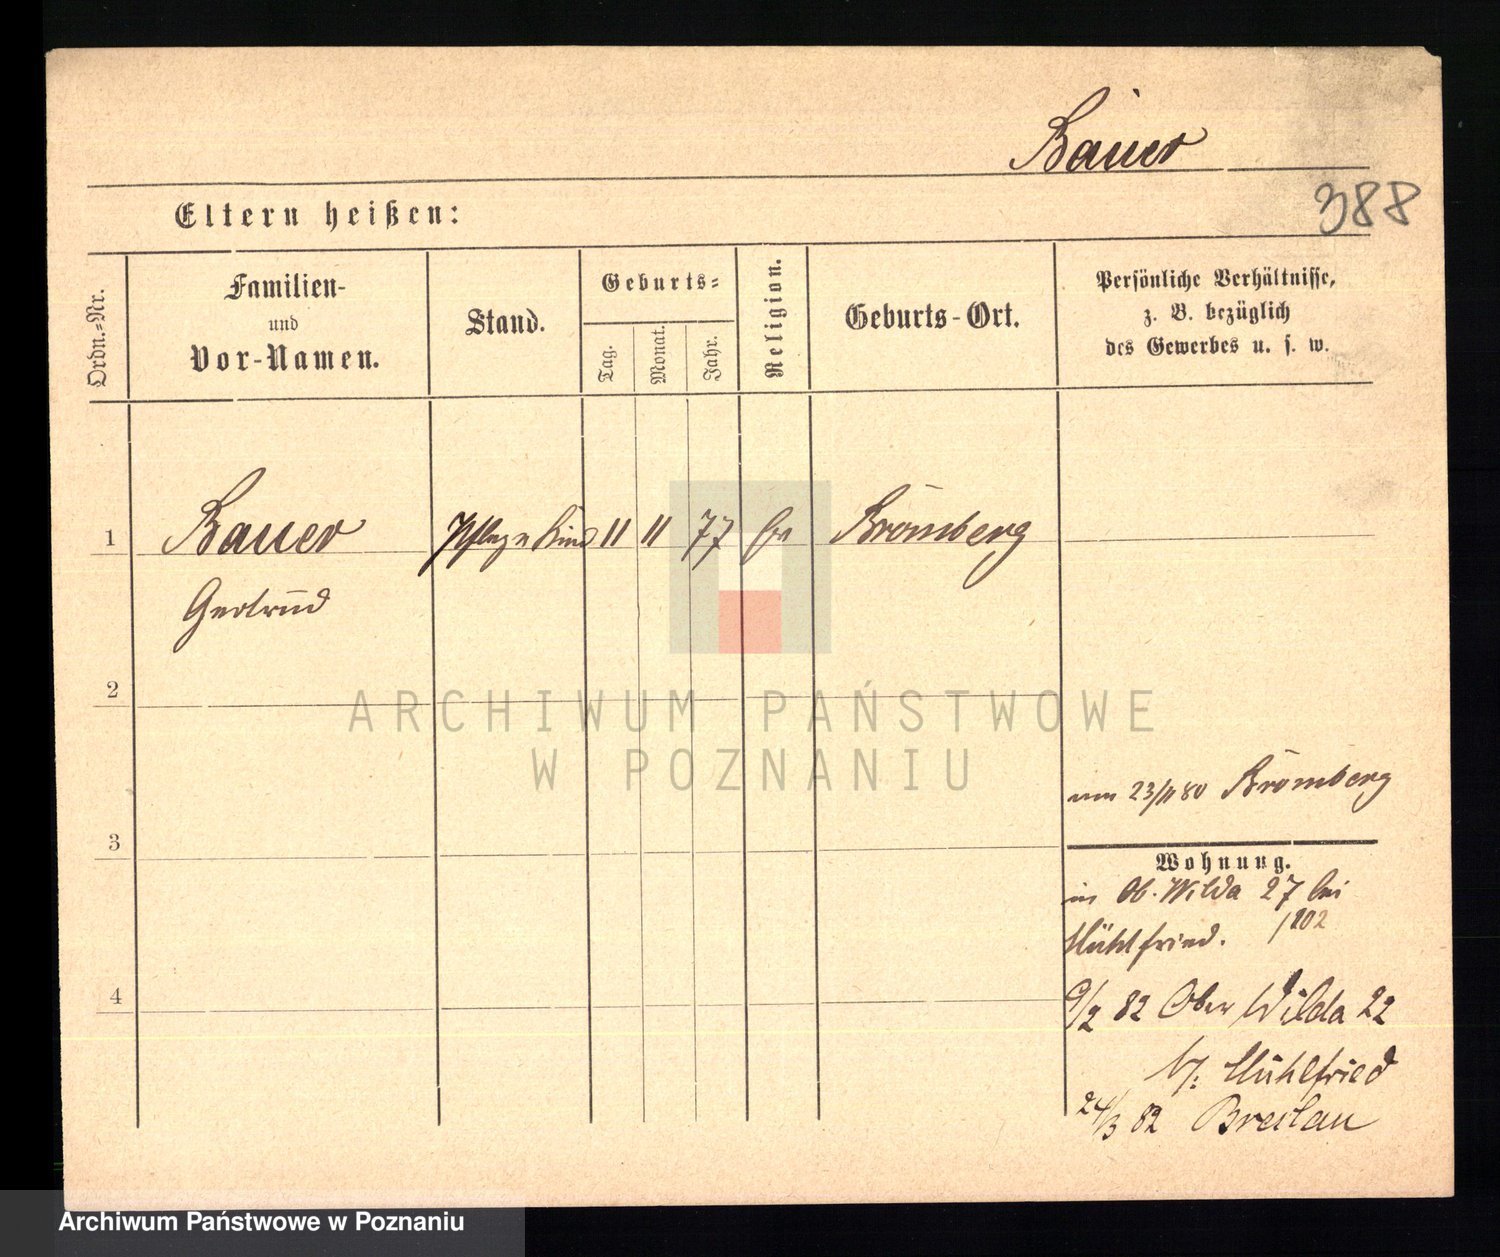 Bauer
388
Eltern heißen:
Ordn.=Nr.
Familien-
und
Vor-Namen.
Stand.
Geburts=
Tag.
Monat.
Jahr.
Religion.
Geburts-Ort.
Persönliche Verhältnisse,
z. B. bezüglich
des Gewerbes u. s. w.
1 Bauer Pflegekind 11 11 77 Bromberg
Gertrud
2
ARCHIWUM PAŃSTWOWE
W POZNANIU
23/11 80 Bromberg
3
Wohnung.
in Ob. Wilda 27 bei
Mühlfried. /102
4
9/2 82 Ober Wilda 22
b/: Mühlfried
24/3 82 Breslau
Archiwum Państwowe w Poznaniu